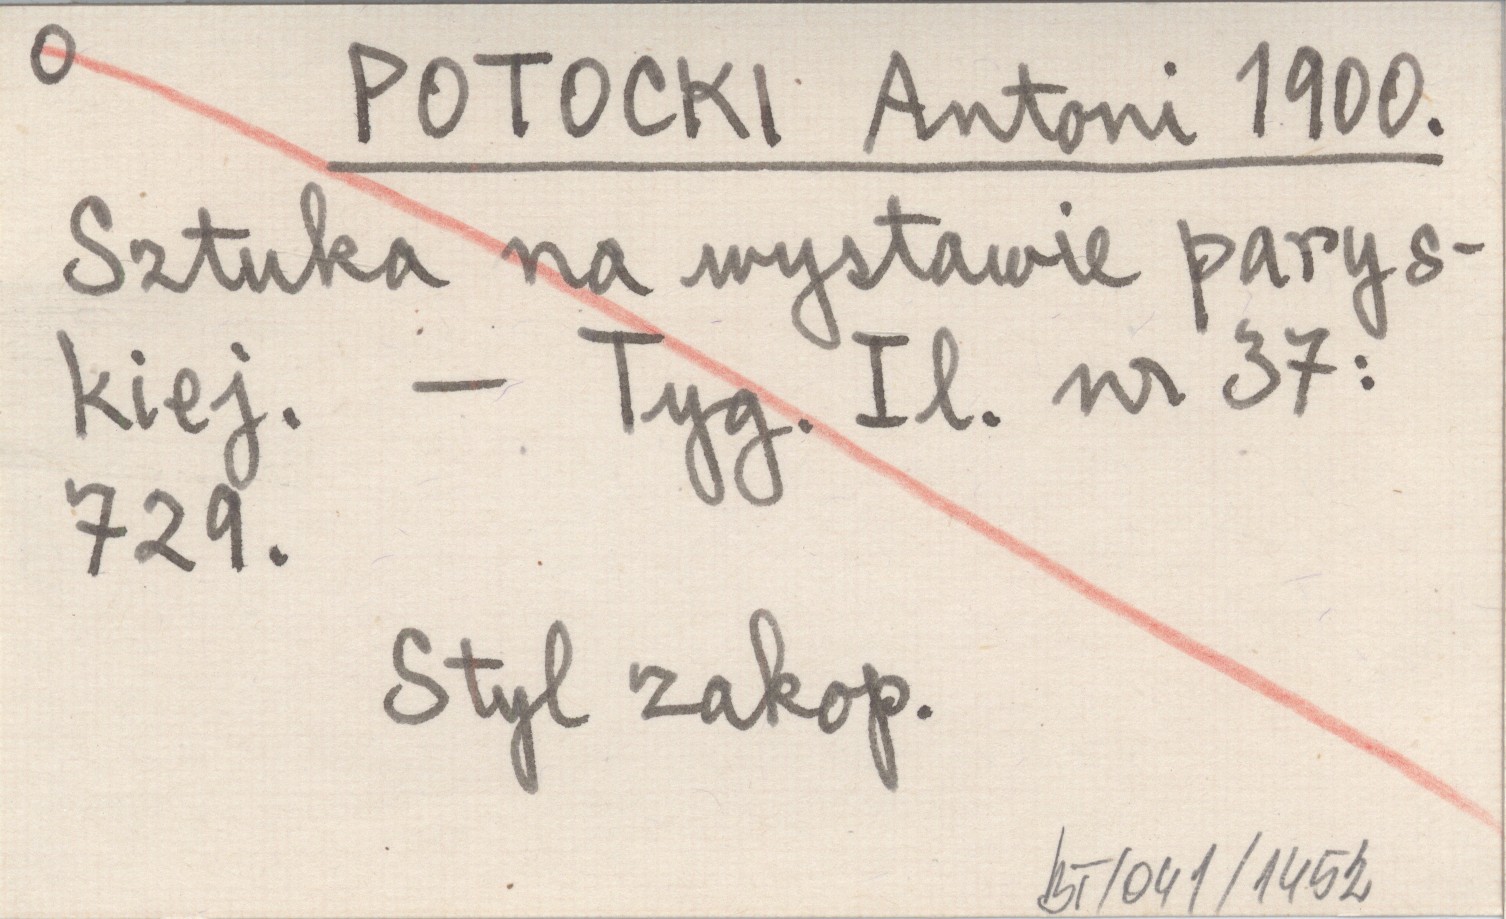 O POTOCKI Antoni 1900.
Sztuka na wystawie parys-
kiej. — Tyg. Il. nr 37:
729.
Styl zakop.
BT/041/1452